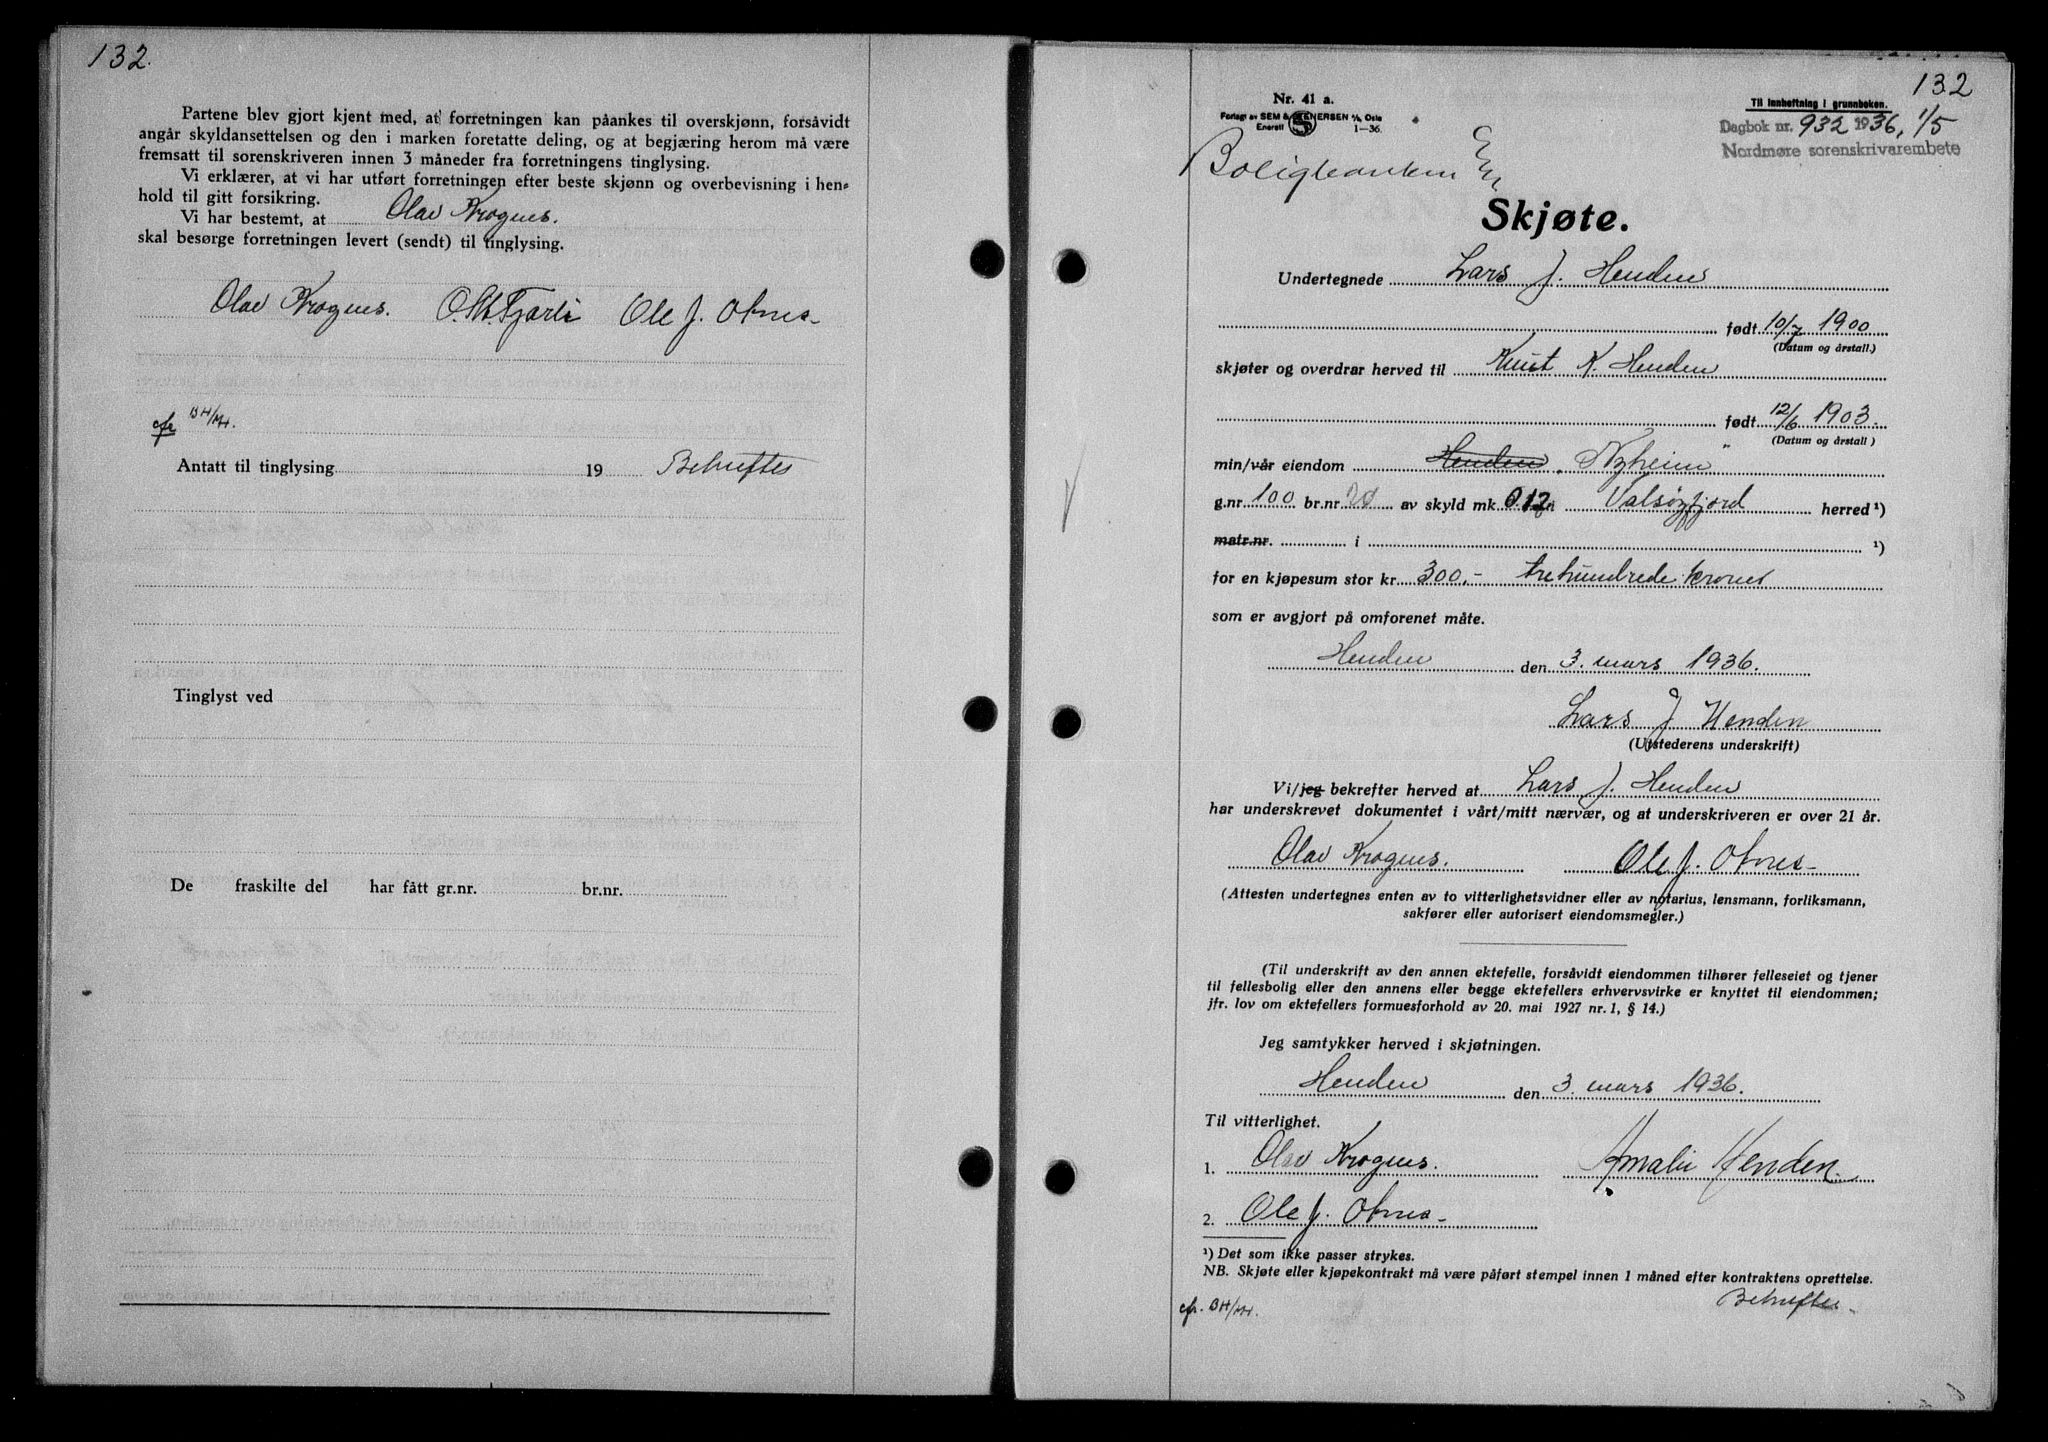 132.
Partene blev gjort kjent med, at forretningen kan påankes til overskjønn, forsåvidt
angår skyldansettelsen og den i marken foretatte deling, og at begjæring herom må være
fremsatt til sorenskriveren innen 3 måneder fra forretningens tinglysing.
Vi erklærer, at vi har utført forretningen efter beste skjønn og overbevisning i hen-
hold til gitt forsikring.
Vi har bestemt, at Olav Krognes.
skal besørge forretningen levert (sendt) til tinglysing.
Olav Krognes. Ole J. Otnes
cfr BH/MH.
Antatt til tinglysing 19 Bekreftes
Tinglyst ved
De fraskilte del har fått gr.nr. br.nr.
132
Nr. 41 a.
Forlagt av SEM & STENERSEN A/S, Oslo
Enerett 1-36.
Til innheftning i grunnboken.
Dagbok nr. 932 1936, 1/5
Nordmøre sorenskrivarembete
Boligbanken
Skjøte.
Undertegnede Lars J. Henden
født 10/7 1900
(Datum og årstall.)
skjøter og overdrar herved til Knut K. Henden
født 12/6 1903.
(Datum og årstall)
min/vår eiendom Henden. "Nyheim"
g.nr 100 br.nr 20 av skyld mk 0.12 i Valsøyfjord herred ¹)
matr.nr. i ¹)
for en kjøpesum stor kr 300.- trehundrede kroner
som er avgjort på omforenet måte.
Henden den 3. mars 1936.
Lars J Henden
(Utstederens underskrift)
Vi/jeg bekrefter herved at Lars J. Henden
har underskrevet dokumentet i vårt/mitt nærvær, og at underskriveren er over 21 år.
Olav Krognes. Ole J. Otnes
(Attesten undertegnes enten av to vitterlighetsvidner eller av notarius, lensmann, forliksmann,
sakfører eller autorisert eiendomsmegler.)
(Til underskrift av den annen ektefelle, forsåvidt eiendommen tilhører felleseiet og tjener
til fellesbolig eller den annens eller begge ektefellers erhvervsvirke er knyttet til eiendommen;
jfr. lov om ektefellers formuesforhold av 20. mai 1927 nr. 1, § 14.)
Jeg samtykker herved i skjøtningen.
Henden den 3. mars 1936.
Til vitterlighet.
1. Olav Krognes. Amalie Henden.
2. Ole J. Otnes
¹) Det som ikke passer strykes.
NB. Skjøte eller kjøpekontrakt må være påført stempel innen 1 måned efter kontraktens oprettelse.
cfr. BH/MH. Bekreftes